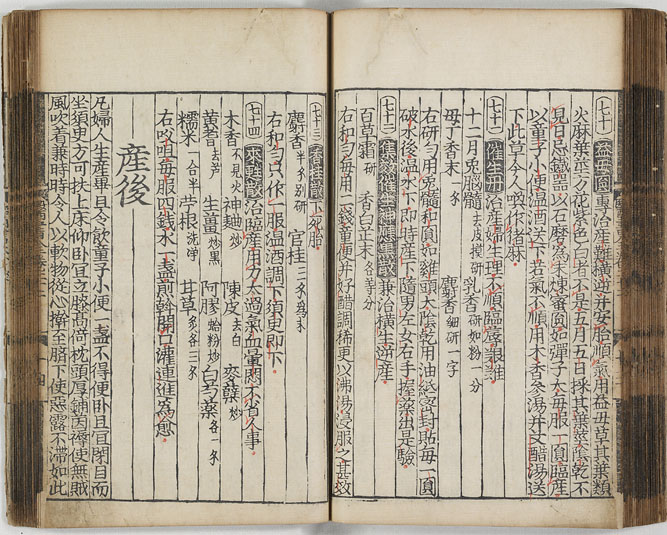 七十 益母圓 專治産難橫逆并安胎順氣用益母草其葉類
火麻葉莖方花紫色白者不是五月五日採其葉莖陰乾不
見日忌鐵器以石磨爲末煉蜜圓如彈子大每服一圓臨産
以童子小便温酒送下若氣不順用木香參湯并艾醋湯送
下此草今人喚作猪麻
七十一 催生丹 治産婦生理不順臨産艱難
十二月兔腦髓 去皮膜研 乳香 研如粉一分
母丁香末 一錢 麝香 細研一字
右研勻用兔髓和圓如雞頭大陰乾用油紙密封貼每一圓
破水後溫水下即時産下隨男左女右手握藥出是驗
七十二 集效催生神應黑散 兼治橫生逆産
百草霜 研 香白芷末 各等分
右和勻每用二錢童便并好醋調稀更以沸湯浸服之甚效
七十三 香桂散 下死胎
麝香 半錢別研 官桂 三錢爲末
右和勻只作一服温酒調下須臾即下
七十四 來甦散 治臨産用力太過氣血暈悶不省人事
木香 不見火 神麯 炒 陳皮 去白 麥蘖 炒
黃耆 去芦 生薑 炒黑 阿膠 蛤粉炒 白芍藥 各一錢
糯米 一合半 苧根 洗淨 甘草 炙各三錢
右㕮咀每服四錢水一盞煎幹開口灌連進爲愈
産後
凡婦人生産畢且令飲童子小便一盞不得便卧且宜閉目而
坐須臾方可扶上床仰卧宜立膝高倚枕頭厚鋪茵褥使無賊
風吹着兼時時令人以軟物從心擀至臍下使惡露不滯如此